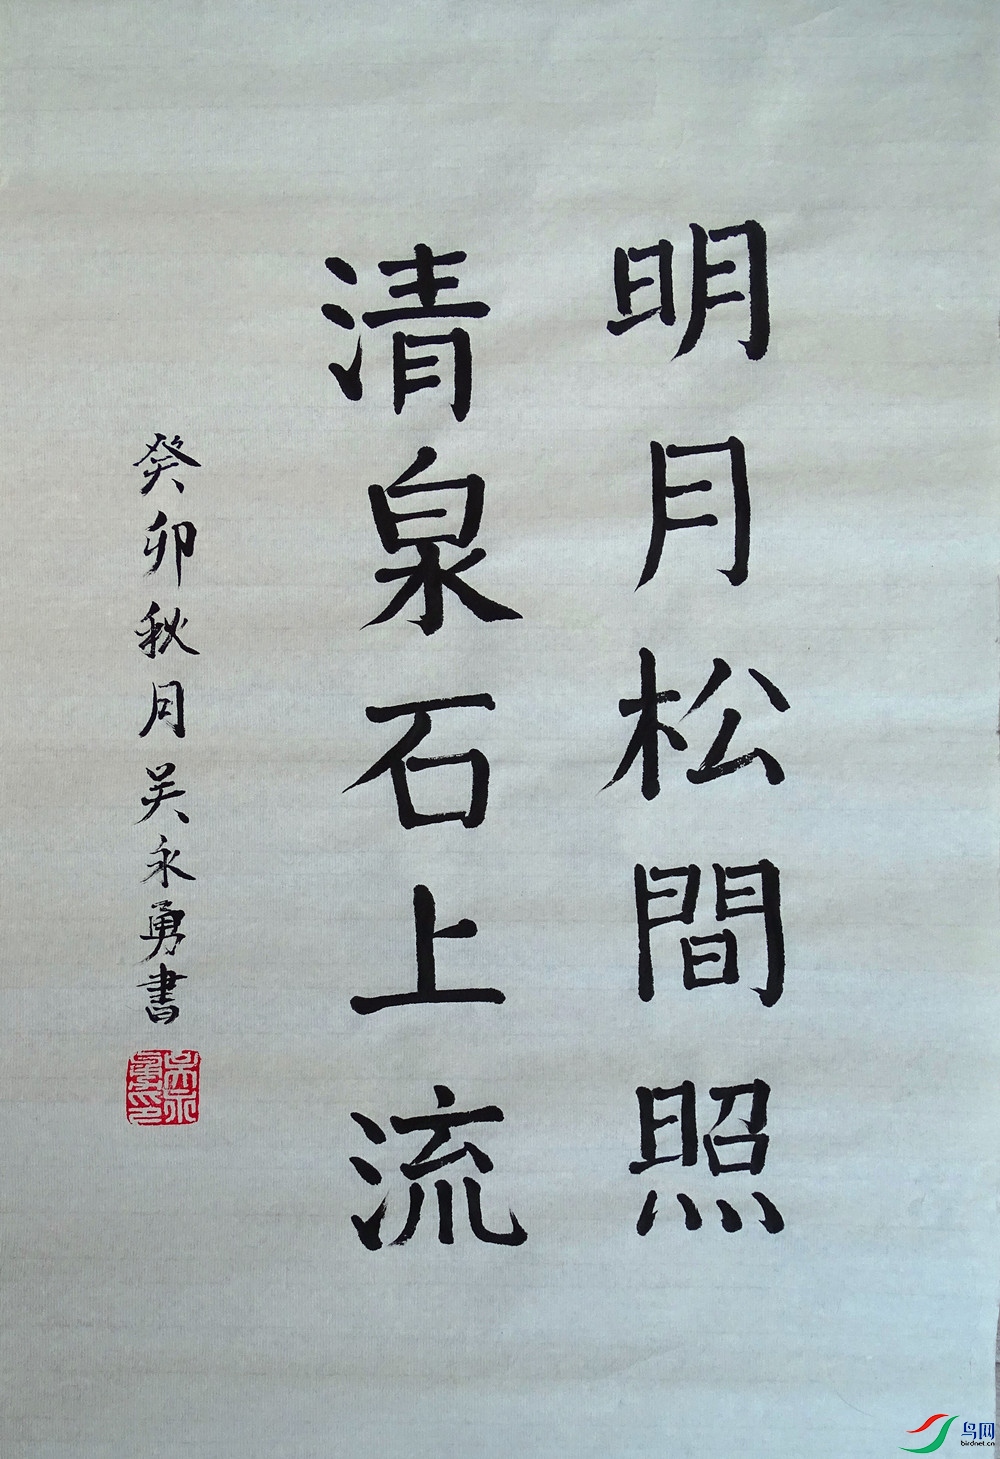 明月松間照
清泉石上流
癸卯秋月吴永勇書
吴永勇印
鸟网
birdnet.cn